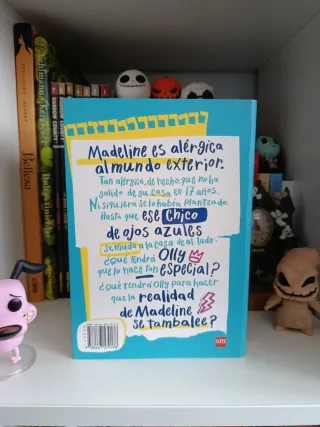 Madeline es alérgica
al mundo exterior.
Tan alérgica, de hecho, que no ha
salido de su casa en 17 años.
Ni siquiera se lo había planteado.
Hasta que ese chico
de ojos azules
se muda a la casa de al lado.
¿Qué tendrá Olly
que lo hace tan especial?
¿Qué tendrá Olly para hacer
que la realidad
de Madeline
se tambalee?
sm
Belleza